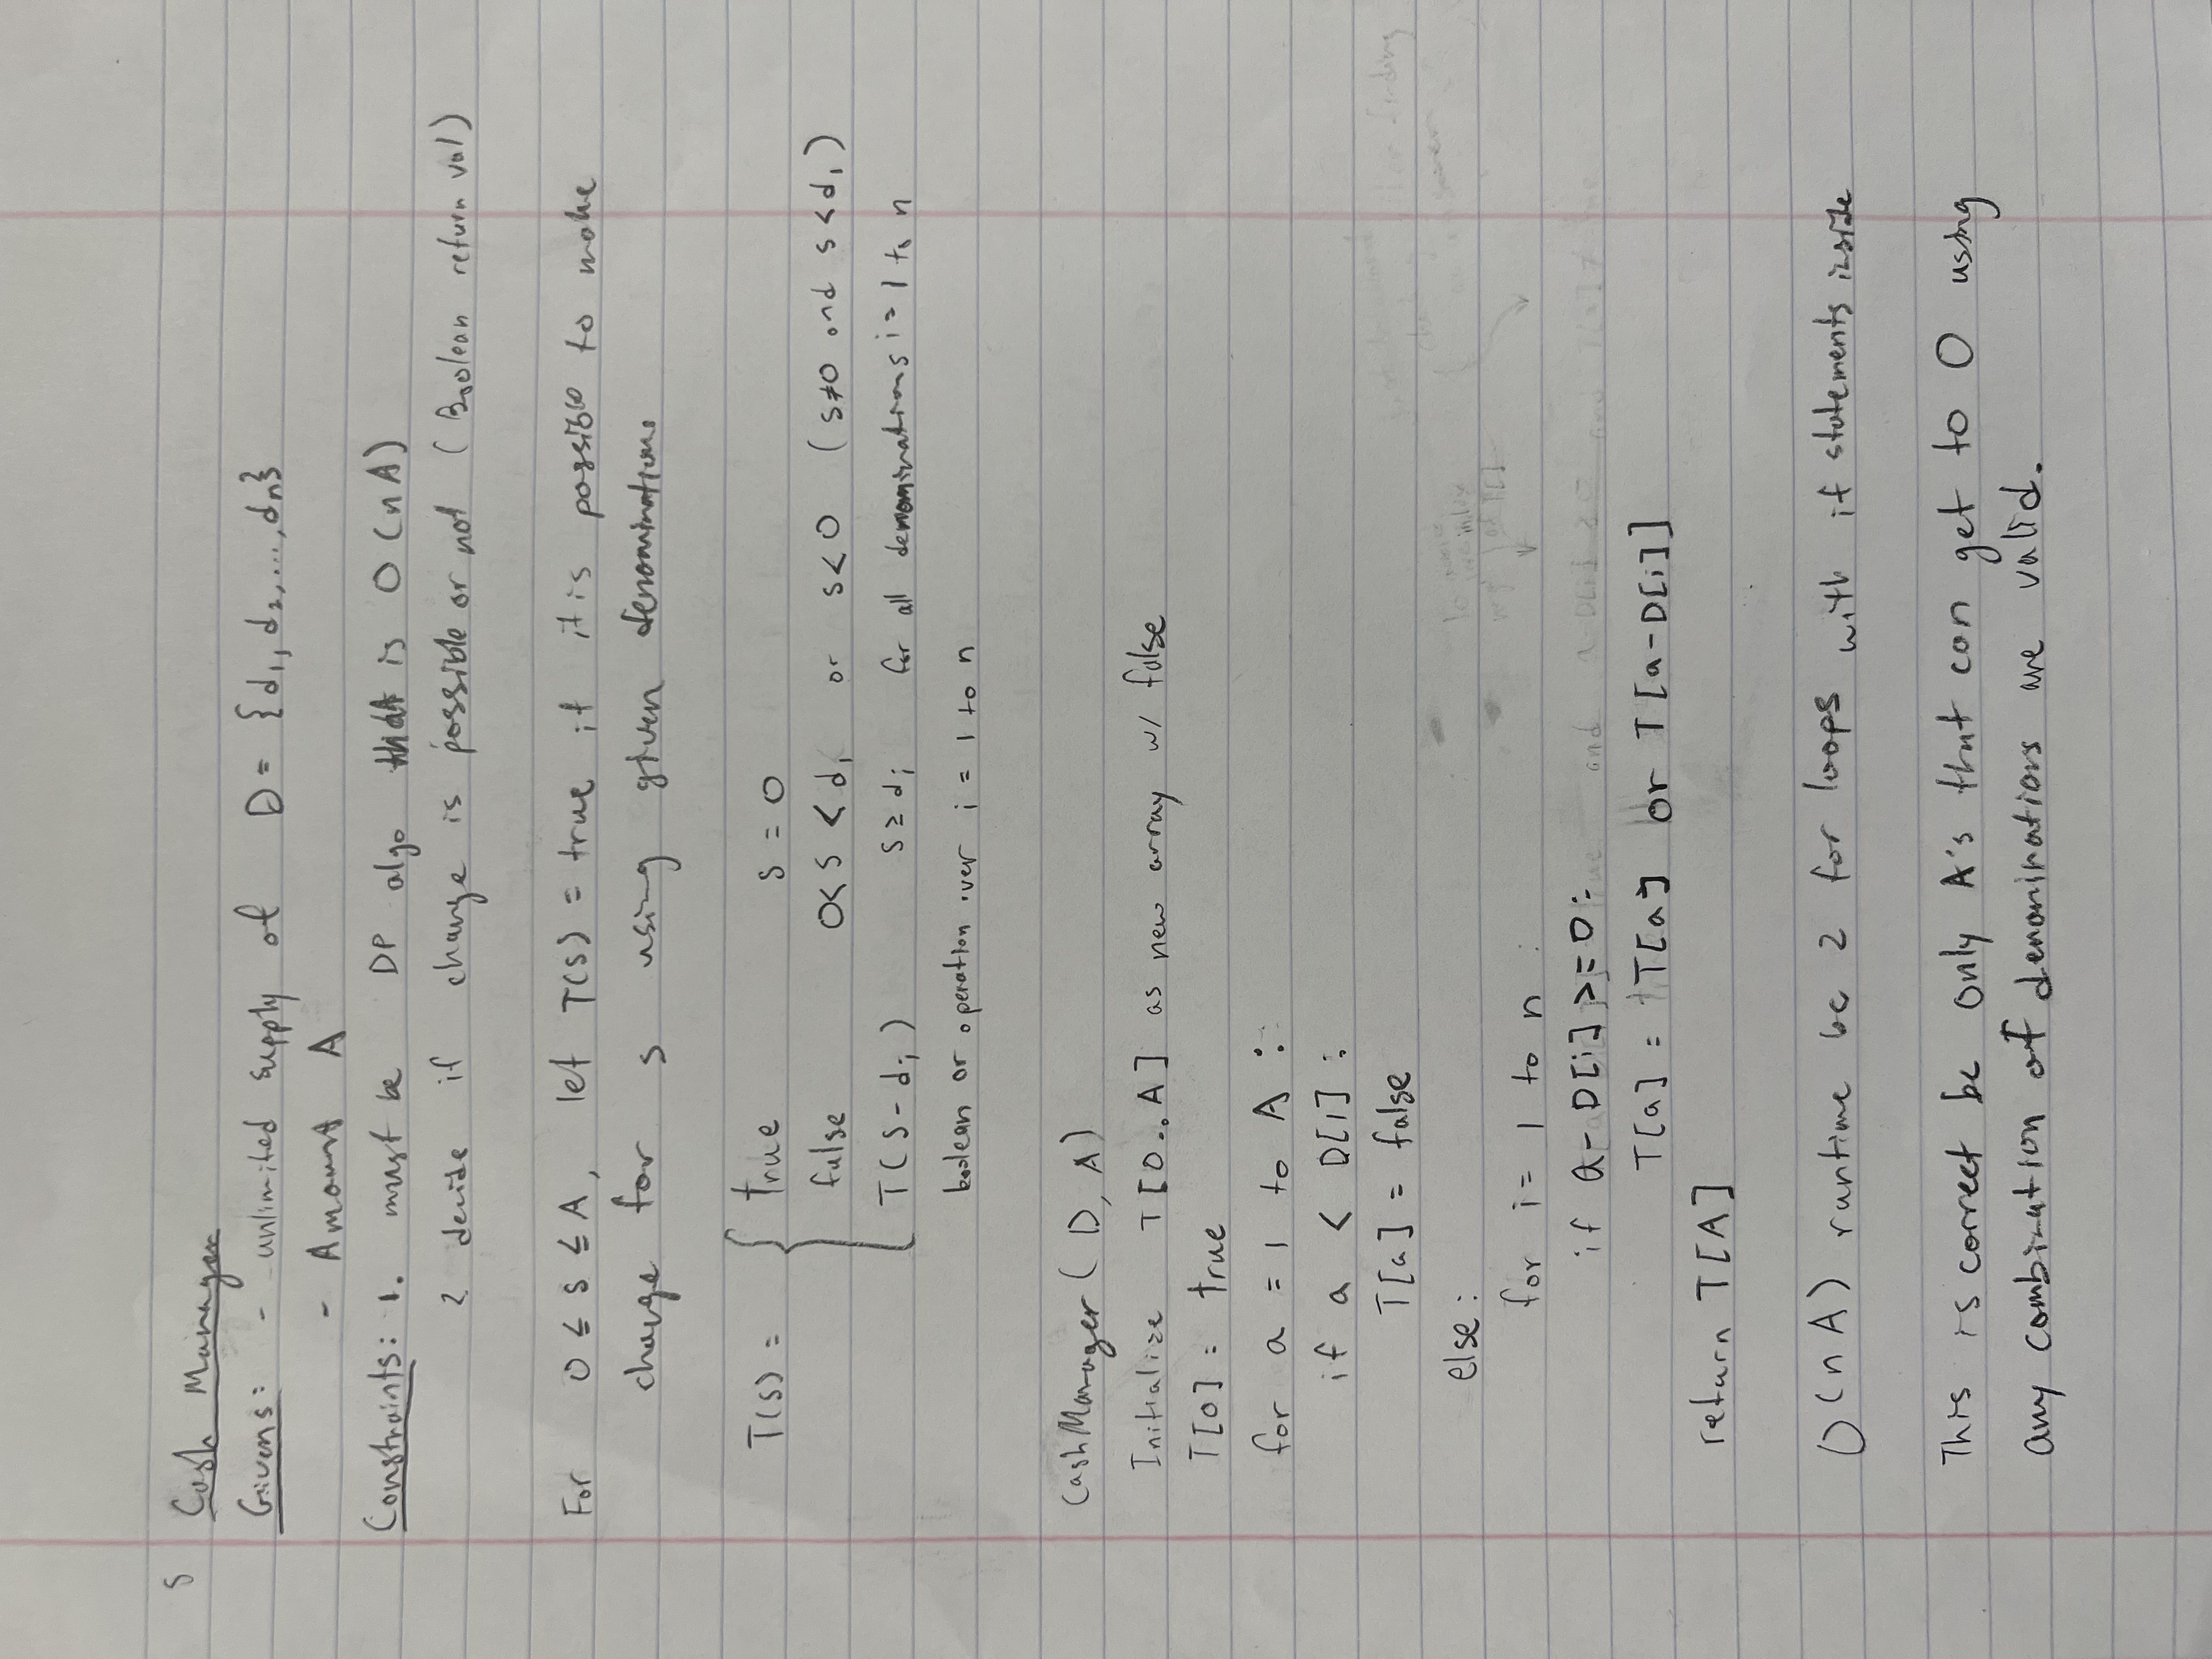 5 Cash Manager
Givens: - unlimited supply of D = {d₁, d₂, ..., dn}
- Amount A
Constraints: 1. must be DP algo that is O(nA)
2 decide if change is possible or not (Boolean return val)
For 0 ≤ s ≤ A, let T(s) = true if it is possible to make
change for s using given denominations
T(s) = { true s = 0
false 0 < s < d₁ or s < 0 (s≠0 and s < d₁)
T(s - dᵢ) s ≥ dᵢ for all denominations i = 1 to n
boolean or operation over i = 1 to n
CashManager (D, A)
Initialize T[0..A] as new array w/ false
T[0] = true
for a = 1 to A :
if a < D[1] :
T[a] = false
else :
for i = 1 to n :
if a - D[i] >= 0 :
T[a] = T[a] or T[a-D[i]]
return T[A]
O(nA) runtime bc 2 for loops with if statements inside
This is correct bc only A's that can get to 0 using
any combination of denominations are valid.